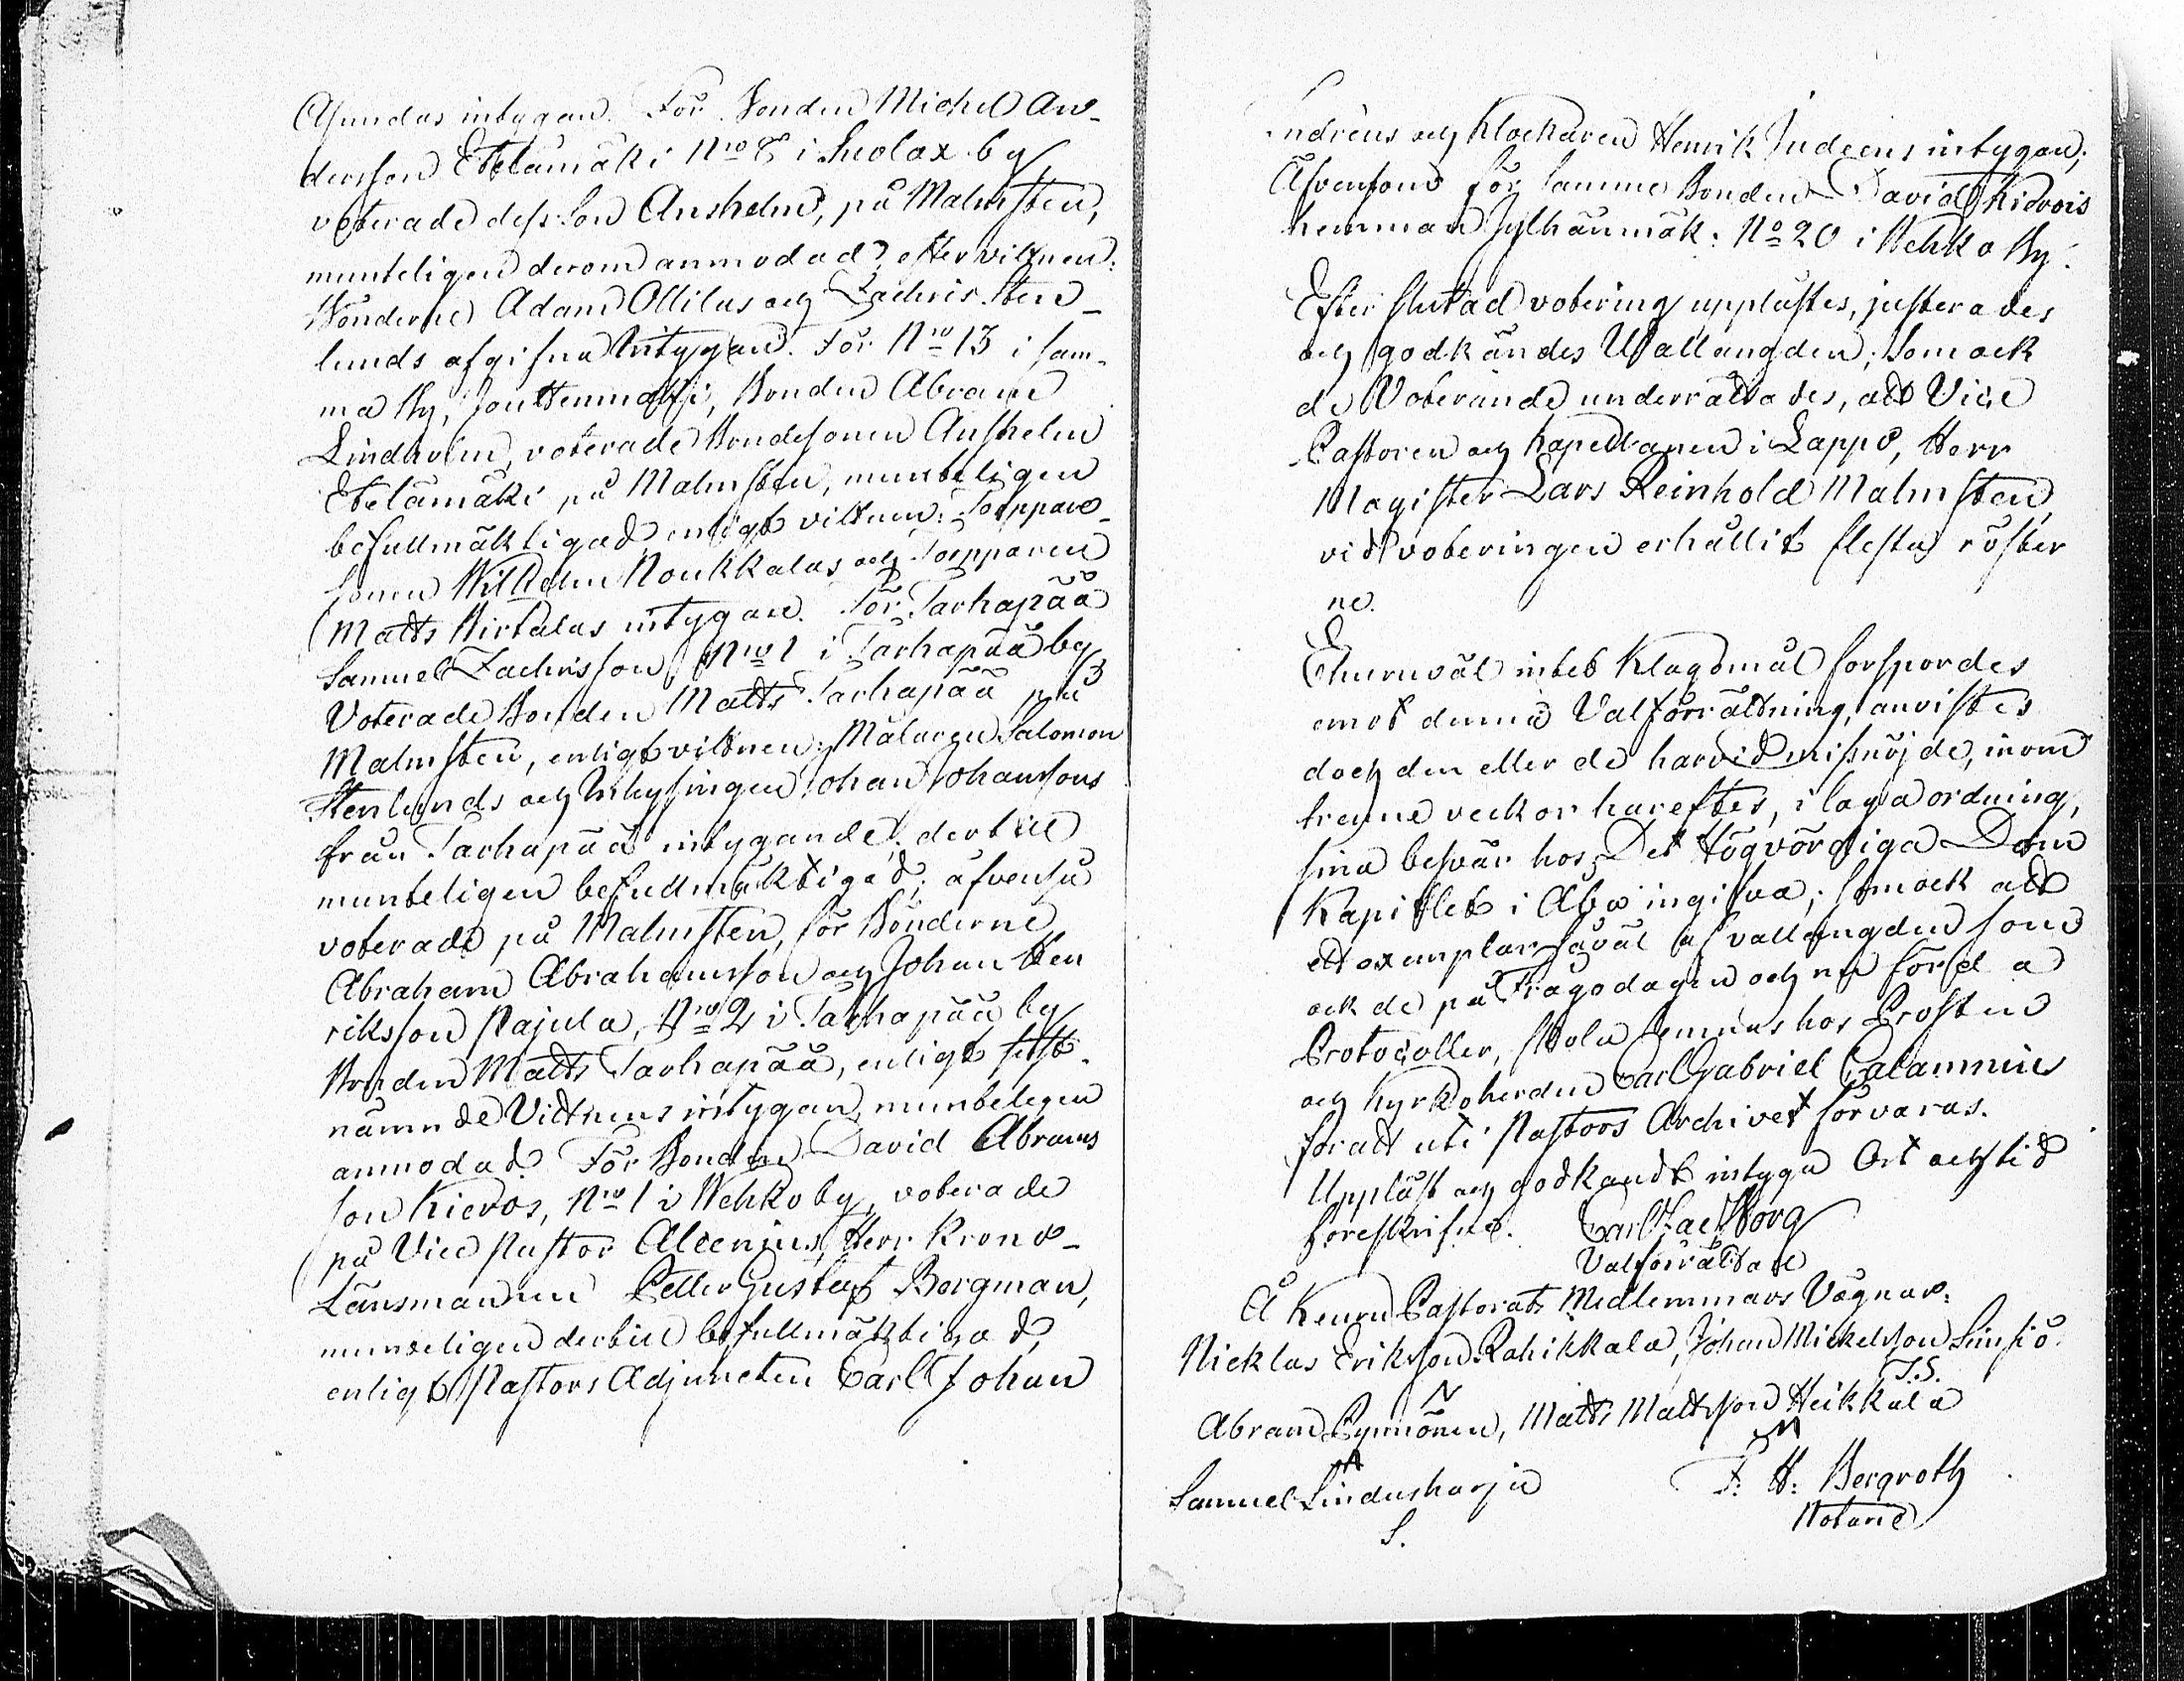 intygan. För Bonden Michel An-
dersson Etelämäki Nro 8 i by
voterade dess Son Anshelm, på Malmsten,
munteligen derom anmodad, efter vittnen:
Bönderne Adam Ollilas och Zachris Sten-
lunds afgifna Intygan. För Nro 13 i sam-
ma By, Bonden Abram
Lindholm, voterade Bondesonen Anshelm
Etelämäki på Malmsten, munteligen
befullmäktigad, enligt vittnen: Torppare-
sonen Wilhelm Noukkalas och Torpparen
Matts Wirtalas intygan. För Tarhapää
Samuel Zachrisson, Nro 1 i Tarhapää by
Voterade Bonden Matts Tarhapää på
Malmsten, enligt vittnen: Målaren Salomon
Stenlunds och Inhysingen Johan Johanssons
från Tarhapää intygande, dertill
munteligen befullmäktigad; äfvenså
voterade på Malmsten, för Bönderne
Abraham Abrahamsson och Johan Hen
riksson Pajula, Nro 2 i Tarhapää by
Bonden Matts Tarhapää, enligt sist-
nämnde Vittnens intygan, munteligen
anmodad. För Bonden David Abrams
son Kieros, Nro 1 i Wehko by, voterade
på Vice Pastor Alcenius, Herr Krono-
Länsmannen Petter Gustaf Bergman,
munteligen dertill befullmäktigad,
enligt Pastors Adjuncten Carl Johan
ndréns och Klockaren Henrik Judeens intygan;
Äfvensom för samme Bonden David Kierois
hemman Jylhänmäk: No 20 i Wehko By.
Efter slutad votering upplästes, justerades
och godkändes Vallängden; Som ock
de Voterande underrättades, att Vice
Pastoren och Kapellanen i Lappo, Herr
Magister Lars Reinhold Malmsten,
vid voteringen erhållit flesta röster
ne.
Ehuruväl intet Klagomål förspordes
emot denna Valförrättning, anvistes
doch den eller de härvid missnöjde, inom
trenne veckor härefter, i laga ordning,
sina besvär hos Det Högvördiga Dom
Kapitlet i Åbo ingifva; Som ock att
ett exemplar såväl af vallängden som
ock de på Frågodagen och nu förda
Protocoller, skola lemnas hos Prosten
och Kyrkoherden Carl Gabriel Calamnius
för att uti Pastors Archivet förvaras.
Uppläst och godkändt intyga Ort och tid
föreskrifne. Carl Zac Borg
Valförrättare
Å Kauru Pastorats Medlemmars Vägnar:
Nicklas Eriksson Rahikkala, Johan Mickelsson Sinsiö
N J.S.
Abram Pynnönen, Matts Mattsson Heikkala
A M
Samuel Linduskarja F. H. Bergroth
S. Notarie